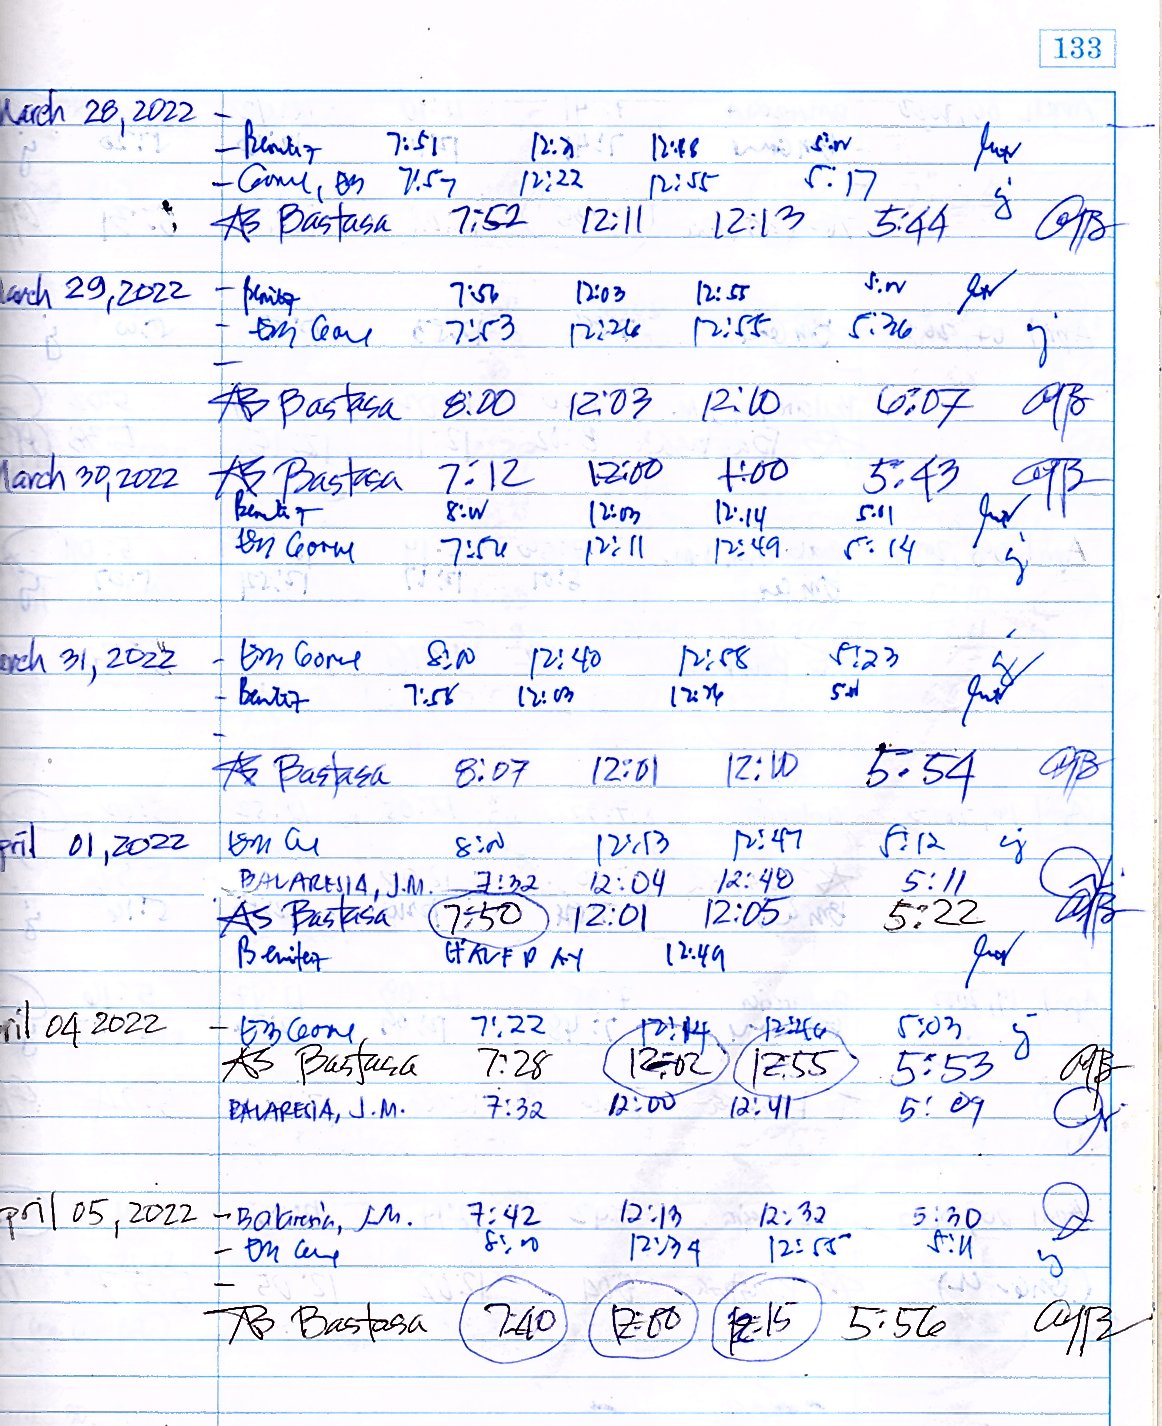 133
March 28, 2022 -
- Benitez 7:51 12:21 12:48 5:00
- Gome, EM 7:57 12:22 12:55 5:17
AB Bastasa 7:52 12:11 12:13 5:44
March 29, 2022 - Benitez 7:56 12:03 12:55 5:00
- EM Gome 7:53 12:26 12:55 5:26
-
AB Bastasa 8:00 12:03 12:10 6:07
March 30, 2022 AB Bastasa 7:12 12:00 1:00 5:43
Benitez 8:00 12:03 12:14 5:01
EM Gome 7:56 12:11 12:49 5:14
March 31, 2022 - EM Gome 8:00 12:40 12:58 5:23
- Benitez 7:58 12:03 12:26
-
AB Bastasa 8:07 12:01 12:10 5:54
April 01, 2022 EM 8:00 12:53 12:47 5:12
BALARESIA, J.M. 7:32 12:04 12:40 5:11
AS Bastasa 7:50 12:01 12:05 5:22
Benitez HALF DAY 12:49
April 04 2022 - EM Gome 7:22 12:14 12:46 5:03
AS Bastasa 7:28 12:02 12:55 5:53
BALARESIA, J.M. 7:32 12:00 12:41 5:09
April 05, 2022 - Balaresia, J.M. 7:42 12:13 12:32 5:30
- EM 8:00 12:34 12:55 5:11
-
AB Bastasa 7:40 12:00 12:15 5:56